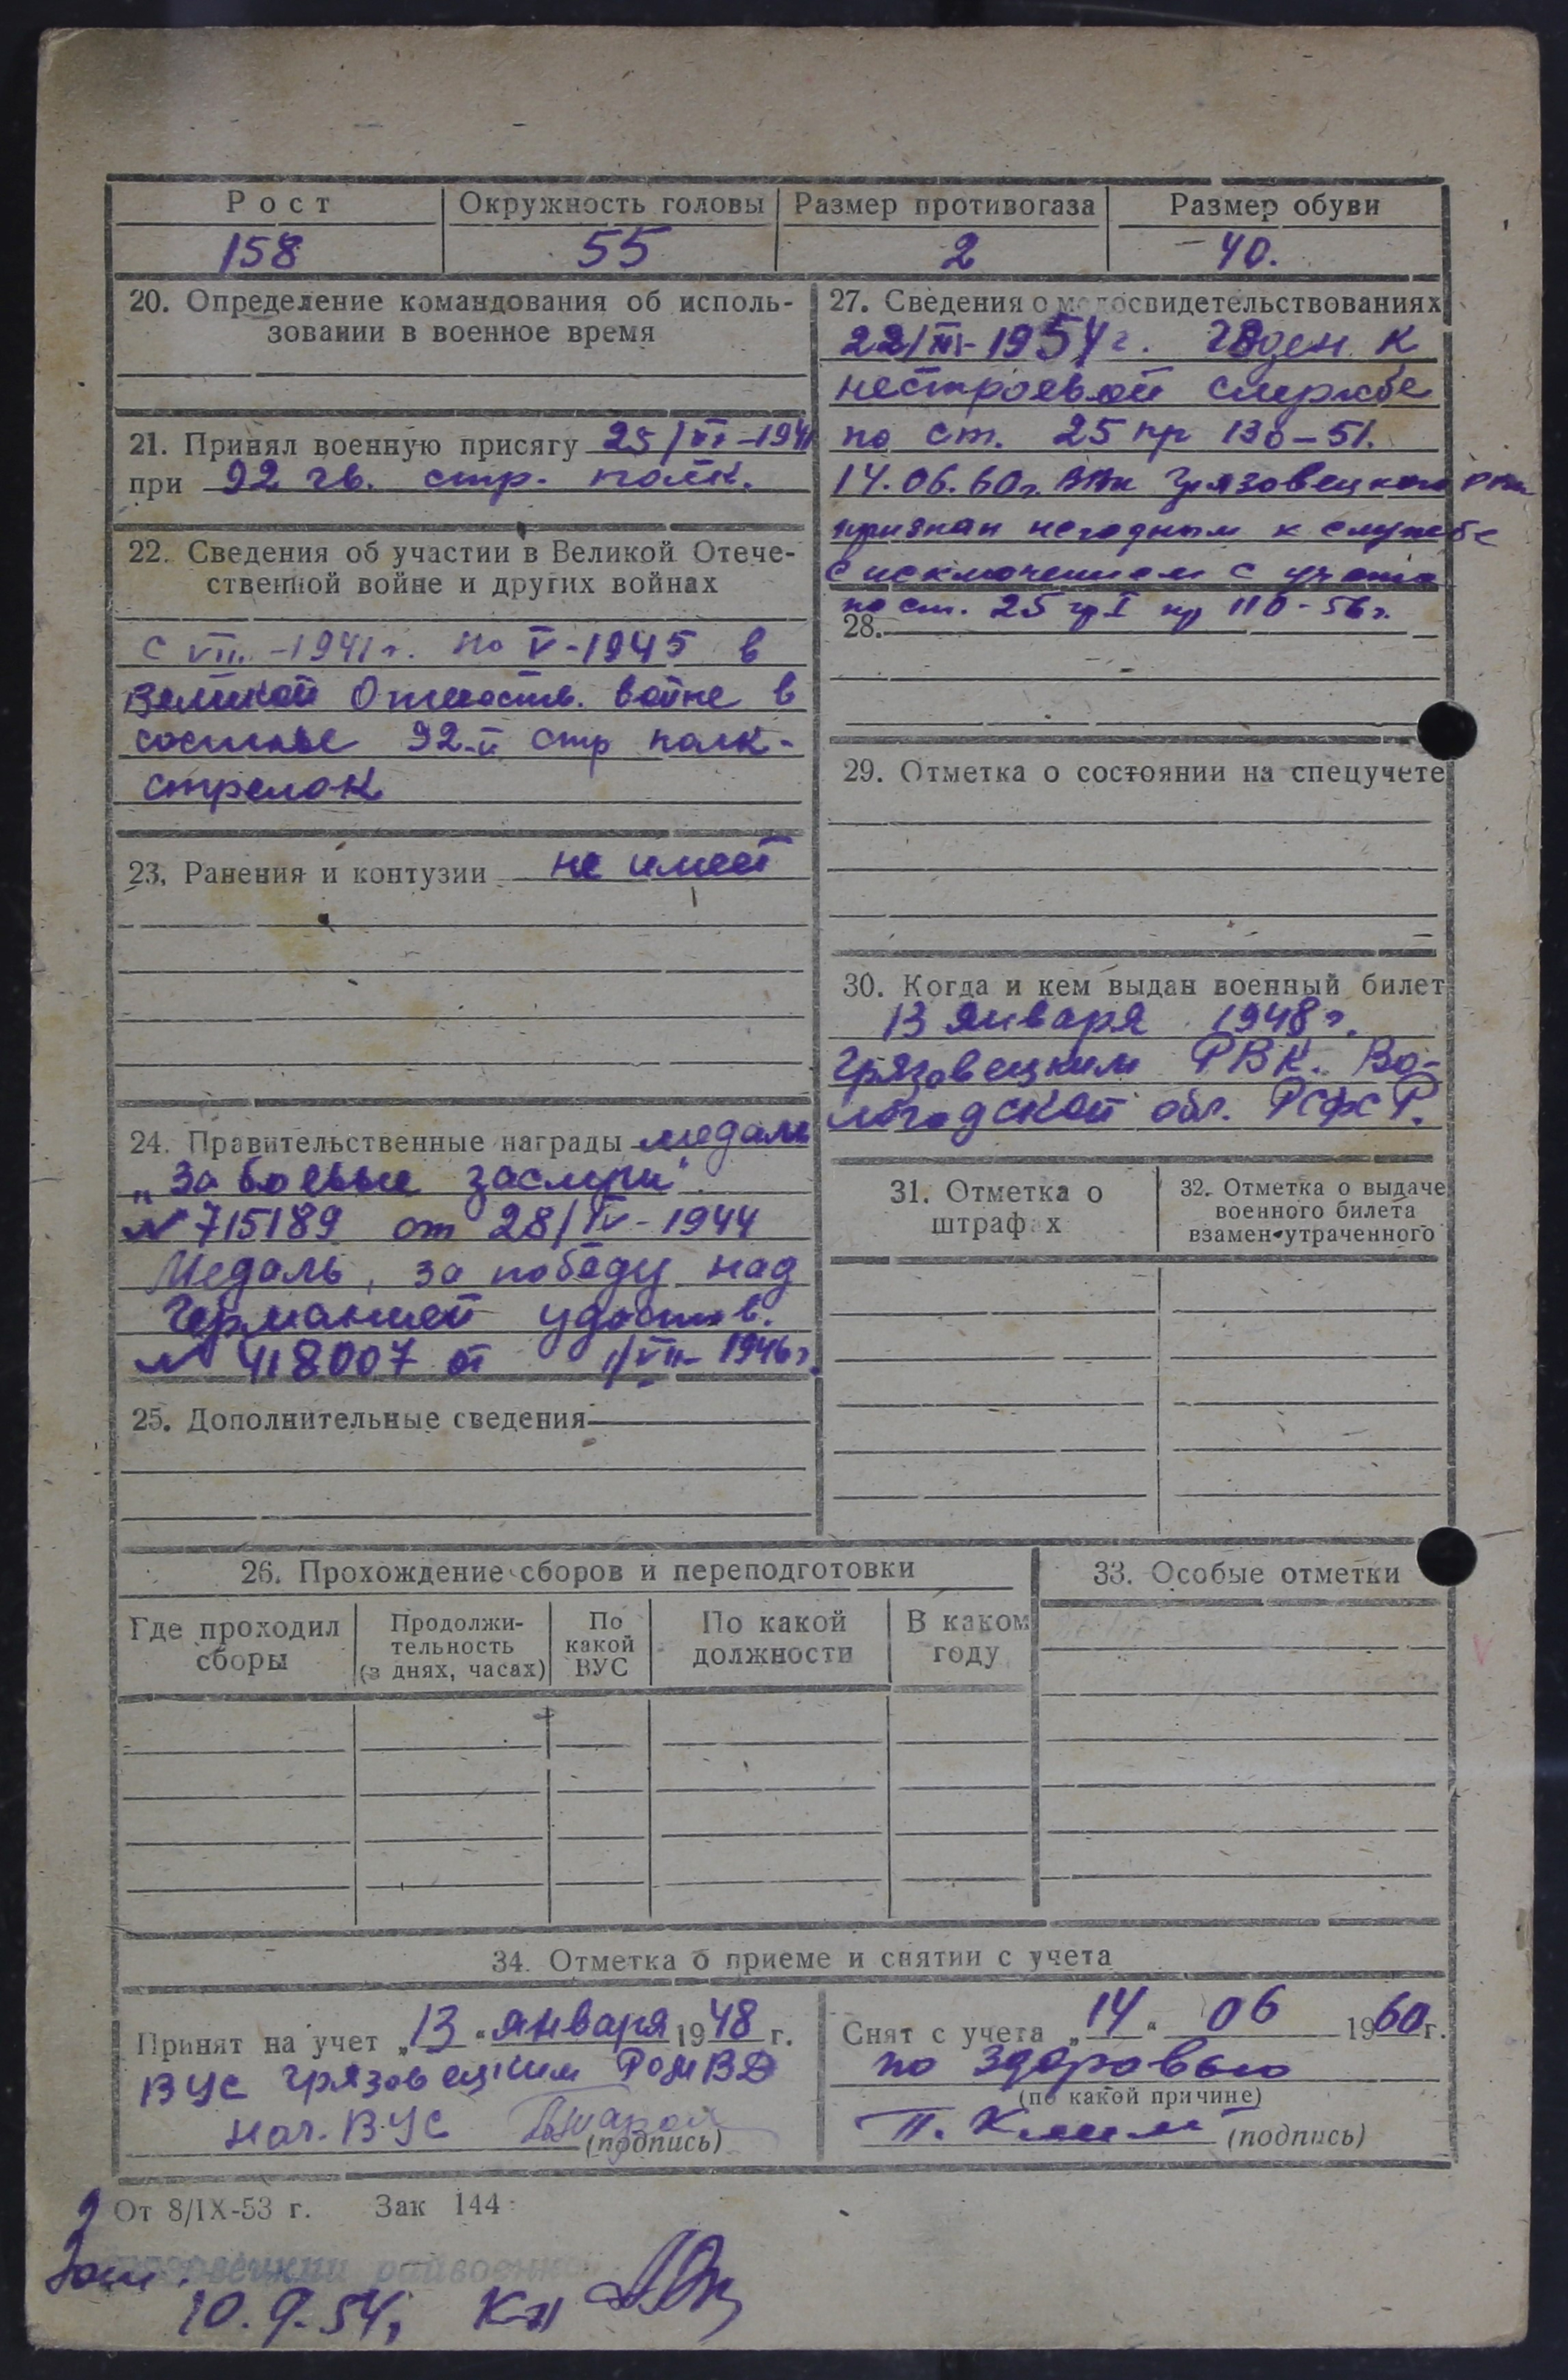 Рост
Окружность головы
Размер противогаза
Размер обуви
158
55
2
40.
20. Определение командования об исполь-
зовании в военное время
21. Принял военную присягу 25/ -1941
при 92 гв. стр. полк.
22. Сведения об участии в Великой Отече-
ственной войне и других войнах
с VII -1941г. по V-1945 в
Великой Отечеств. войне в
составе 92-й стр полк-
стрелок
23. Ранения и контузии не имеет
24. Правительственные награды медаль
„За боевые заслуги"
№ 715189 от 28/IV-1944
Медаль, за победу над
Германией удостов.
№ 418007 от 1/VII- 1946г.
25. Дополнительные сведения
27. Сведения о медосвидетельствованиях
22/III-1954г. Годен к
нестроевой службе
по ст. 25 пр 130-51.
14.06.60г. Грязовецкого
признан негодным к службе
с исключением с учета
по ст. 25 гр I пр 110-56г.
28.
29. Отметка о состоянии на спецучете
30. Когда и кем выдан военный билет
13 января 1948г.
Грязовецким РВК. Во-
логодской обл. РСФСР.
31. Отметка о
штрафах
32. Отметка о выдаче
военного билета
взамен утраченного
26. Прохождение сборов и переподготовки
Где проходил
сборы
Продолжи-
тельность
(в днях, часах)
По
какой
ВУС
По какой
должности
В каком
году
33. Особые отметки
34. Отметка о приеме и снятии с учета
Принят на учет „13" января 1948 г.
ВУС Грязовецким РОМВД
Нач. ВУС
(подпись)
Снят с учета „14" 06 1960г.
по здоровью
(по какой причине)
(подпись)
От 8/IX-53 г. Зак 144
10.9.54,